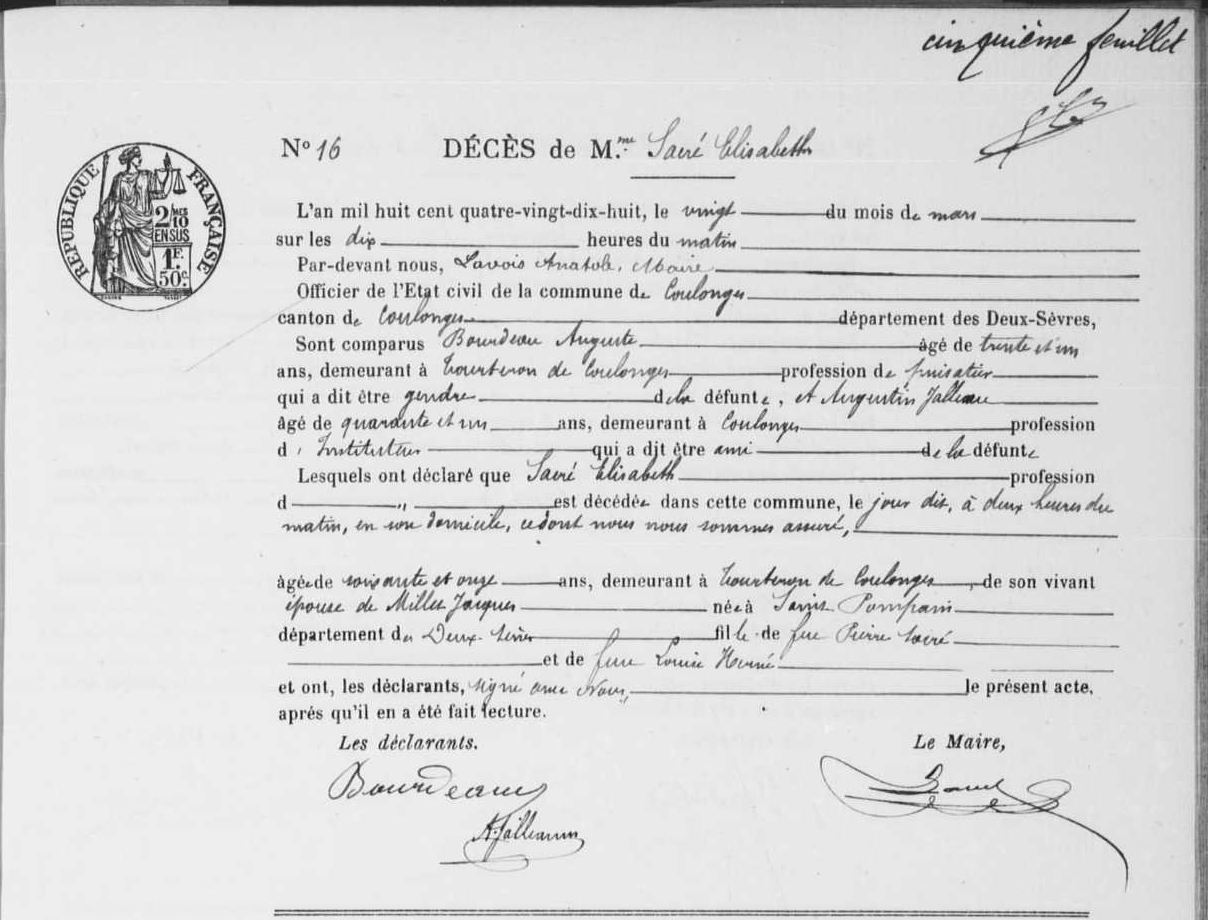 cinquième feuillet
RÉPUBLIQUE FRANÇAISE
2/10MES
EN SUS
1F.
50c.
No 16 DÉCÈS de M.me Sacré Elisabeth
L'an mil huit cent quatre-vingt-dix-huit, le vingt du mois de mars
sur les dix heures du matin
Par-devant nous, Lavois Anatole, Maire
Officier de l'Etat civil de la commune de Coulonges
canton de Coulonges département des Deux-Sèvres,
Sont comparus Bourdeau Auguste âgé de trente et un
ans, demeurant à Tourteron de Coulonges profession de puisatier
qui a dit être gendre de la défunte, et Augustin Jalleau
âgé de quarante et un ans, demeurant à Coulonges profession
d'Instituteur qui a dit être ami de la défunte
Lesquels ont déclaré que Sacré Elisabeth profession
d " est décédée dans cette commune, le jour dit, à deux heures du
matin, en son domicile, ce dont nous nous sommes assuré,
âgée de soixante et onze ans, demeurant à Tourteron de Coulonges, de son vivant
épouse de Millet Jacques née à Saint Pompain
département des Deux-Sèvres fille de feu Pierre Sacré
et de feue Louise
et ont, les déclarants, signé avec Nous, le présent acte,
aprés qu'il en a été fait lecture.
Les déclarants. Le Maire,
Bourdeau
A. Jalleau